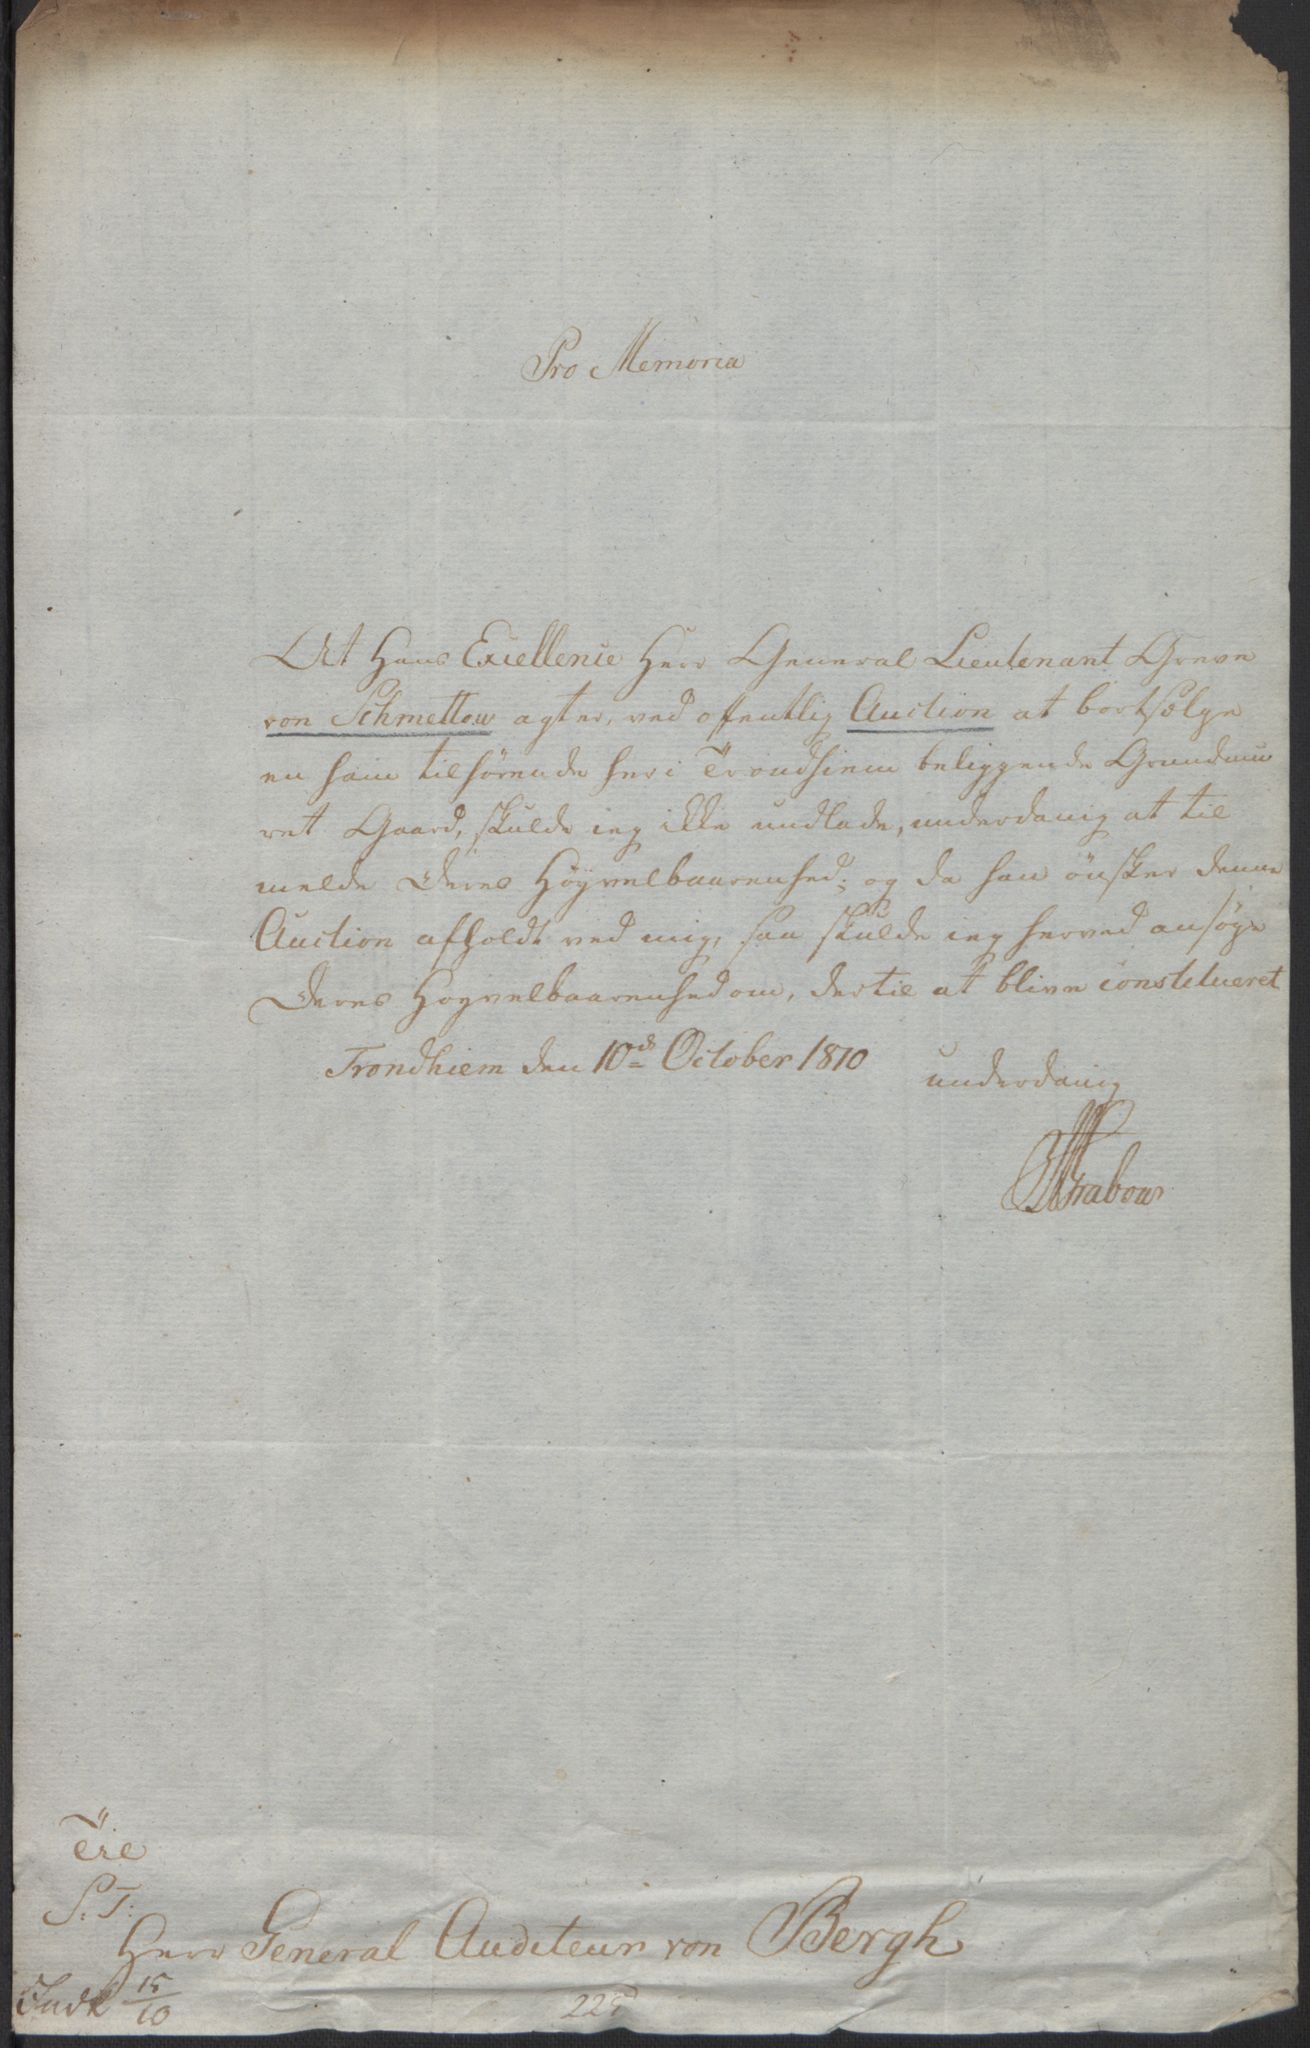 Pro Memoria
At Hans Excellence Herr General Lieutenant Greve
von Schmettow agter, ved offentlig Auction at bortsælge
en ham tilhørende her i Trondhiem beliggende Grundmu
ret Gaard, skulde ieg ikke undlade, underdanig at til
melde Deres Höyvelbaarenhed; og da han önsker denne
Auction afholdt ved mig, saa skulde ieg herved ansöge
Deres Hoyvelbaarenhed om, dertil at blive constitueret
Trondhiem den 10de October 1810
underdanig
Til
S. T:
Herr General Auditeur von Bergh
Indk 15/10